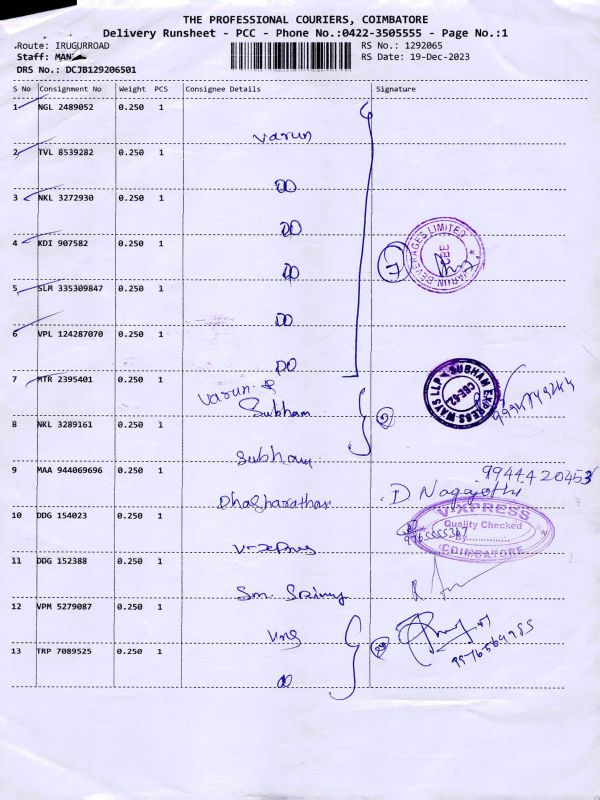 THE PROFESSIONAL COURIERS, COIMBATORE
Delivery Runsheet - PCC - Phone No.:0422-3505555 - Page No.:1
Route: IRUGURROAD
RS No.: 1292065
Staff: MAN
RS Date: 19-Dec-2023
DRS No.: DCJB129206501
S No Consignment No Weight PCS Consignee Details Signature
1 NGL 2489052 0.250 1
Varun
2 TVL 8539282 0.250 1
DO
3 NKL 3272930 0.250 1
DO
4 KDI 907582 0.250 1
DO
VARUN BEVERAGES LIMITED
7
5 SLM 335309847 0.250 1
DO
6 VPL 124287070 0.250 1
DO
7 MTR 2395401 0.250 1
Varun &
Subham
SUBHAM EXPRESS WAYS LLP
CBE-02
8 NKL 3289161 0.250 1
Subham
9 MAA 944069696 0.250 1
9944420453
D Nagajothi
10 DDG 154023 0.250 1
V-XPRESS
Quality Checked
By
COIMBATORE
V-Xpress
11 DDG 152388 0.250 1
12 VPM 5279087 0.250 1
Vng
9976569985
13 TRP 7089525 0.250 1
DO